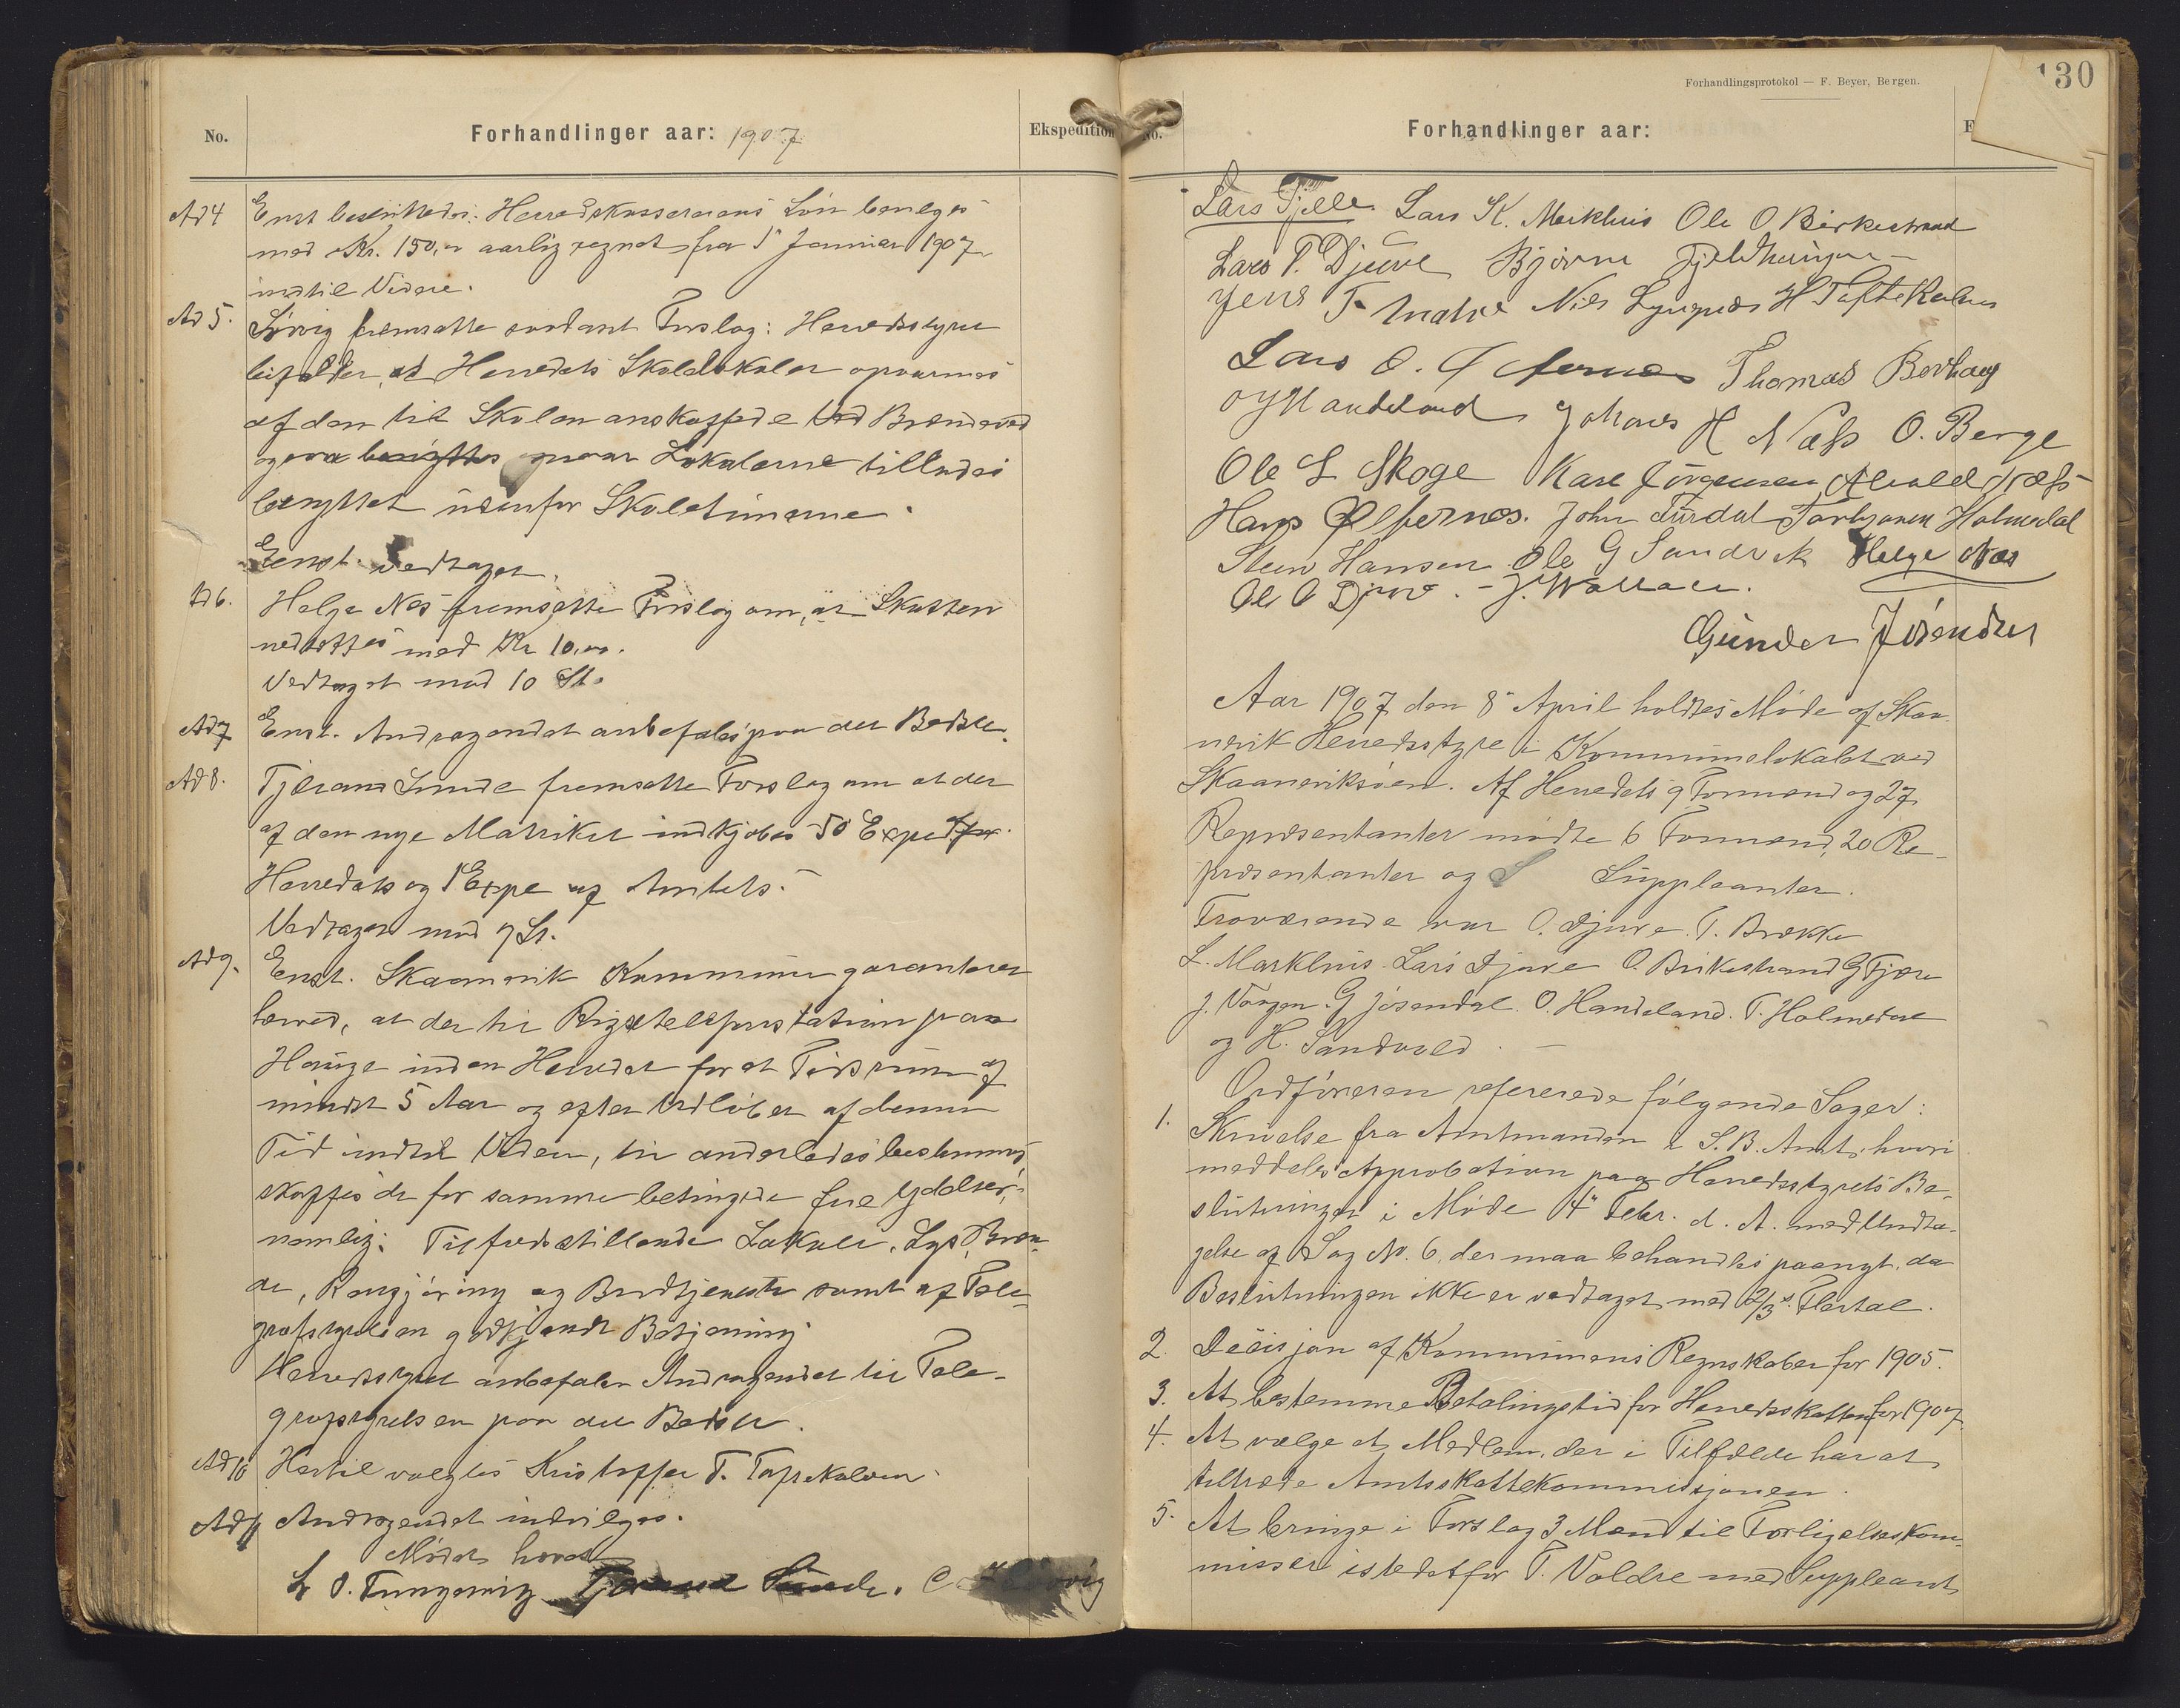 No.
Forhandlinger aar: 1907
Ekspedition
Ad 4 Enst besluttedes: Herredskassererens Løn bevilges
med Kr. 150,00 aarlig regnet fra 1' Januar 1907
indtil Videre.
Ad 5. fremsatte saadant Forslag: Herredsstyret
bifalder, at Herredets Skolelokaler opvarmes
af den til Skolen anskaffede Ved Brændeved
ogsaa naar Lokalerne tillades
benyttet udenfor Skoletimerne.
Enst. vedtaget.
Ad 6. Helge Nes fremsatte Forslag om, at Skatten
nedsættes med Kr 10,00.
Vedtaget mod 10 St.
Ad 7 Enst. Andragendet anbefales paa det Bedste.
Ad 8. Tjerand Sunde fremsatte Forslag om at der
af den nye Matrikel indkjøbes 50 Expe
Herredets og 1 Expe af Amtets.
Vedtaget mod 9 St.
Ad 9. Enst. Skaanevik Kommune garanterer
herved, at der til Rigstelefonstation paa
Hauge inden Herredet for et Tidsrum af
mindst 5 Aar og efter Udløbet af denne
Tid indtil Videre, til anderledes bestemmes
skaffes de for samme betingede frie Ydelser,
nemlig: Tilfredsstillende Lokale, Lys, Bræn-
de, Rengjøring og Budtjeneste samt af Tele-
grafstyrelsen godkjendt Betjening
Herredsstyret anbefaler Andragendet til Tele-
grafstyrelsen paa det Bedste.
Ad 10 Hertil valgtes Kristoffer T. Toftekalven
Ad 11 Andragendet indvilges.
Mødet hævet
L O. Tungesvig Tjerand Sunde.
Forhandlingsprotokol — F. Beyer, Bergen.
130
No.
Forhandlinger aar:
E
Lars Fjelle Lars K. Markhus Ole O Birkestrand
Lars T. Djuve Bjørne Fjeldhaugen
Jens T. Matre Nils H Toftekalven
Lars O. Thomas Borthaug
O J Handeland Johanes H Næss O. Berge
Ole L Skoge Karl Jörgensen Næss
Hans Ølfernes. John Turdal Torbjørn Holmedal
Steen Hansen Ole G Sandvik Helge Nes
Ole O Djuve. - J. Wallace.
Gunder Jøsendal
Aar 1907 den 8' April holdtes Møde af Skaa-
nevik Herredsstyre i Kommunelokalet ved
Skaaneviksøen. Af Herredets 9 Formænd og 27
Repræsentanter mødte 6 Formænd, 20 Re-
præsentanter og Suppleanter.
Fraværende var O. Djuve. T. Brække
L. Markhus Lars Djuve O. Birkestrand G Fjære
J. Vaagen. G Jøsendal. O. Handeland. T. Holmedal
og H. Sandvold. —
Ordføreren refererede følgende Sager:
1. Skrivelse fra Amtmanden i S. B. Amt, hvori
meddeles Approbation paa Herredsstyrets Be-
slutninger i Møde 4' Febr. d. A. med Undta-
gelse af Sag No. 6, der maa behandles paanyt, da
Beslutningen ikke er vedtaget med 2/3 s. Flertal.
2. Decisjon af Kommunens Regnskaber for 1905.
3. At bestemme Betalingstid for Herredsskatten for 1907.
4. At vælge et Medlem, der i Tilfælde har at
tiltræde Amtsskattekommissjonen.
5. At bringe i Forslag 3 Mænd til Forligelseskom-
missær istedetfor T. Valdre med Suppleant